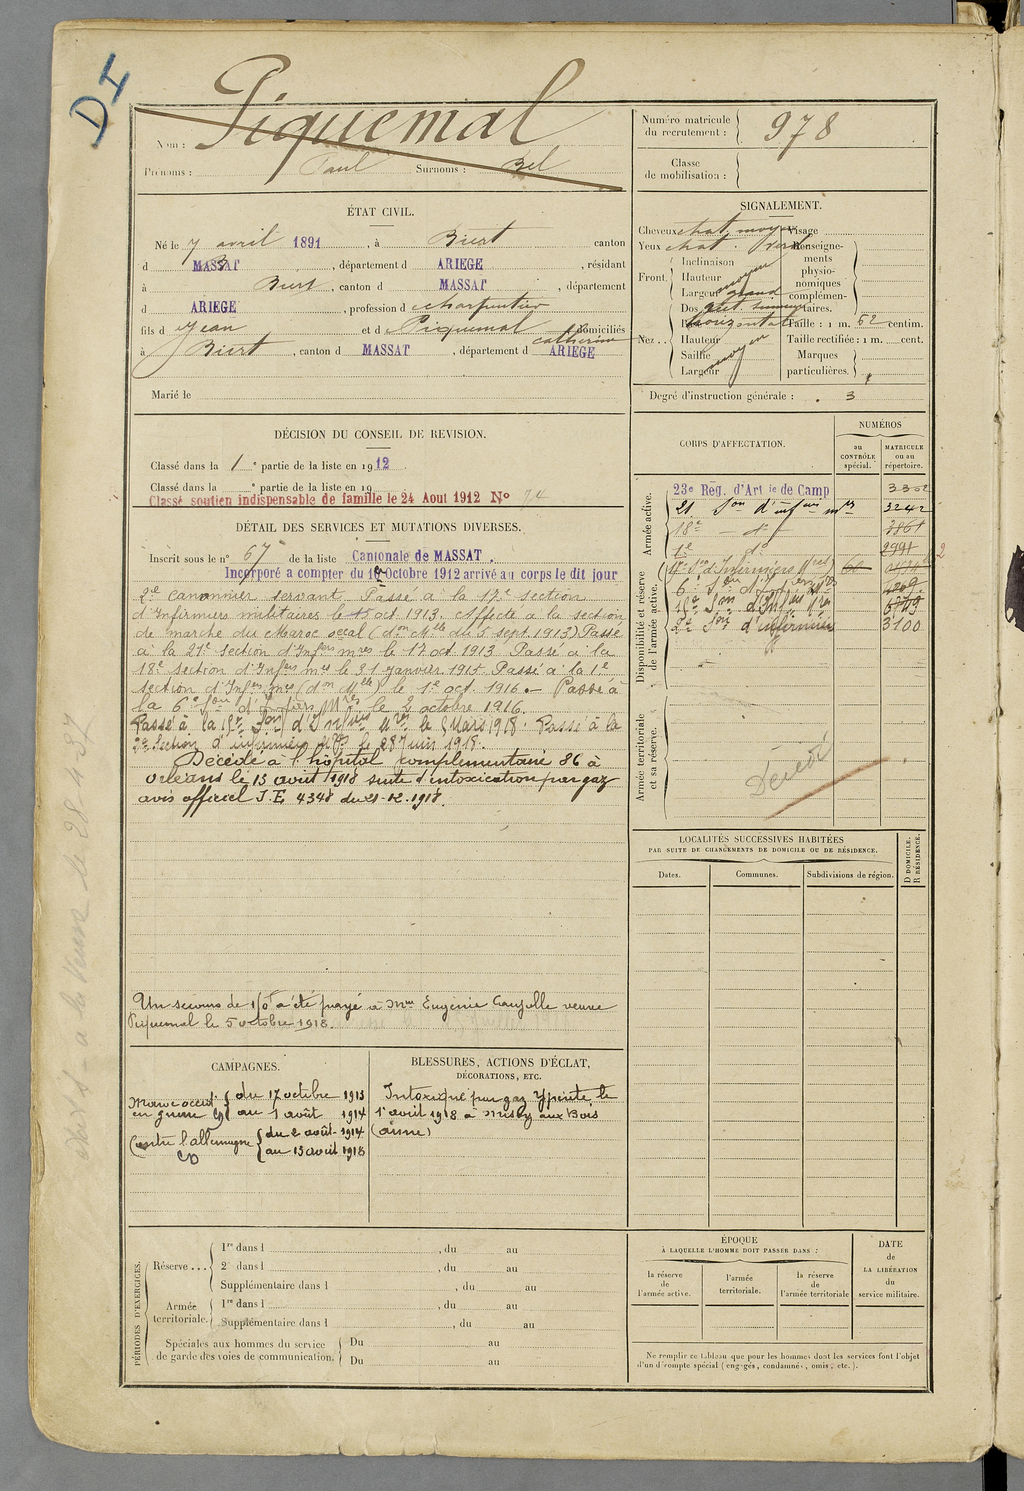 DI
Nom : Piquemal
Prénoms : Paul Surnoms : Bel
Numéro matricule du recrutement : 978
Classe de mobilisation :
ÉTAT CIVIL.
Né le 7 avril 1891, à Biert canton
d MASSAT, département d ARIEGE, résidant
à Biert, canton d MASSAT, département
d ARIEGE, profession d charpentier
fils d Jean et d Piquemal Catherine domiciliés
à Biert, canton d MASSAT, département d ARIEGE
Marié le
SIGNALEMENT.
Cheveux chat. moyen Visage
Yeux chat. verd
Renseignements physionomiques complémentaires.
Front.
Inclinaison
Hauteur moyen
Largeur grand
Nez..
Dos
Base horizontale
Hauteur
Saillie moyen
Largeur
Taille : 1 m. 52 centim.
Taille rectifiée : 1 m. cent.
Marques particulières.
Degré d'instruction générale : 3
DÉCISION DU CONSEIL DE REVISION.
Classé dans la 1e partie de la liste en 1912.
Classé dans la e partie de la liste en 19
Classé soutien indispensable de famille le 24 Aout 1912 No 74
DÉTAIL DES SERVICES ET MUTATIONS DIVERSES.
Inscrit sous le n° 67 de la liste Cantonale de MASSAT.
Incorporé a compter du 10 Octobre 1912 arrivé au corps le dit jour
2e canonnier servant. Passé à la 17e section
d'Infirmiers militaires le 15 oct. 1913. Affecté à la section
de marche du Maroc occal (don Mlle du 5 sept. 1913) Passé
à la 21e section d'Infers mres le 17 oct. 1913 Passé à la
18e section d'Infers mres le 31 janvier 1915. Passé à la 1e
section d'Infers mres (don Mlle) le 1e oct. 1916. — Passé à
la 6e Son d'Infiers Mres le 2 octobre 1916.
Passé à la 15e Son d'Infiers Mres le 5 Mars 1918. Passé à la
2e Section d'infirmiers Mres le 28 Juin 1918.
Décédé à l'hôpital complémentaire 86 à
Orléans le 13 août 1918 suite d'intoxication par gaz
avis officiel J.E. 4348 du 21-12-1918.
Un secours de 150f a été payé à Mme Eugénie Caujolle veuve
Piquemal le 5 octobre 1918.
CORPS D'AFFECTATION.
NUMÉROS
au CONTRÔLE spécial.
MATRICULE ou au répertoire.
Armée active.
23e Reg. d'Artie de Camp 3302
21 Son d'infiers mres 3242
18e - do - 3861
1e do 2991
Disponibilité et réserve de l'armée active.
6e Son d'Infiers Mres
15e Son d'Infiers Mres
2e Son d'infirmiers 3100
Armée territoriale et sa réserve.
Décédé
LOCALITÉS SUCCESSIVES HABITÉES
PAR SUITE DE CHANGEMENTS DE DOMICILE OU DE RÉSIDENCE.
Dates. Communes. Subdivisions de région.
D DOMICILE.
R RÉSIDENCE.
CAMPAGNES.
Maroc occid. en guerre du 17 octobre 1913
au 1 août 1914
Contre l'allemagne du 2 août 1914
au 13 août 1918
BLESSURES, ACTIONS D'ÉCLAT,
DÉCORATIONS, ETC.
Intoxiqué par gaz Ypérite le
1e avril 1918 à Missy aux Bois
(aisne)
PÉRIODES D'EXERCICES.
Réserve...
1re dans l , du au
2e dans l , du au
Supplémentaire dans l , du au
Armée territoriale.
1re dans l , du au
Supplémentaire dans l , du au
Spéciales aux hommes du service de garde des voies de communication.
Du au
Du au
ÉPOQUE
À LAQUELLE L'HOMME DOIT PASSER DANS :
la réserve de l'armée active.
l'armée territoriale.
la réserve de l'armée territoriale
DATE de LA LIBÉRATION du service militaire.
Ne remplir ce tableau que pour les hommes dont les services font l'objet
d'un décompte spécial (engagés, condamnés, omis, etc.).